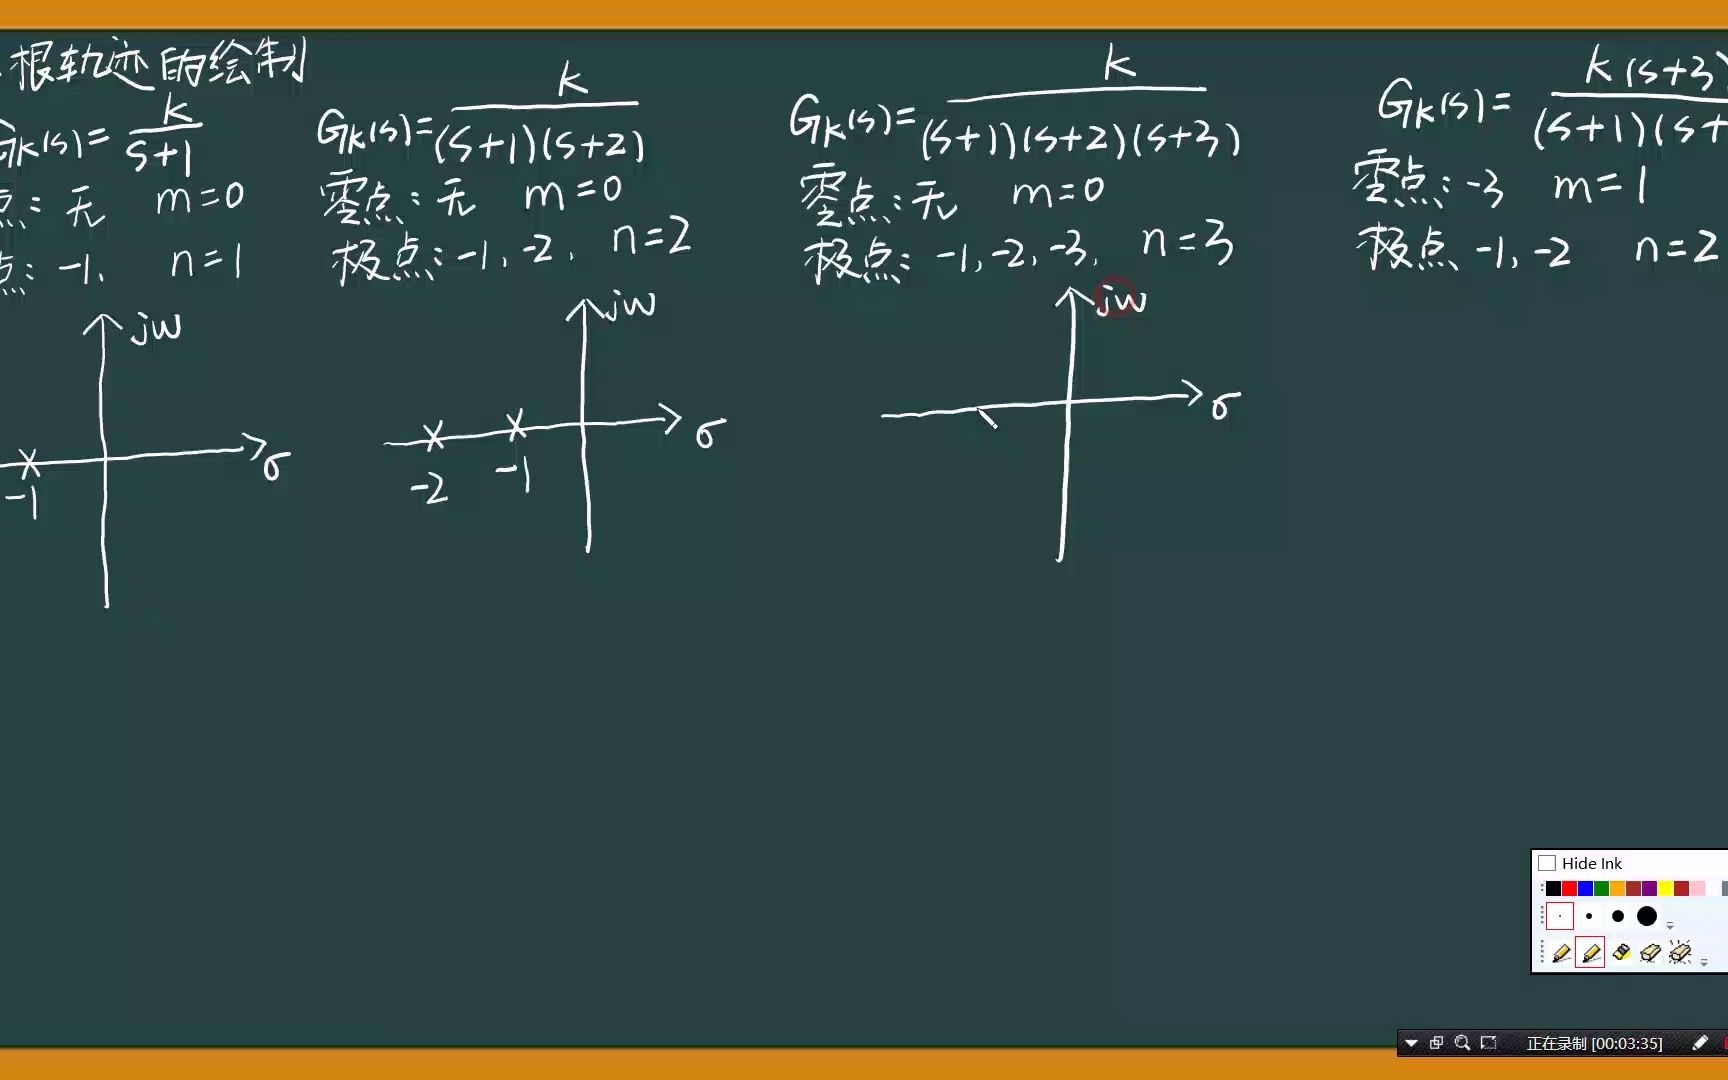 根轨迹的绘制
GK(s)= k/(s+1)
点: 无 m=0
点: -1, n=1
jw
σ
-1
GK(s)= k/((s+1)(s+2))
零点: 无 m=0
极点: -1, -2, n=2
jw
σ
-2 -1
GK(s)= k/((s+1)(s+2)(s+3))
零点: 无 m=0
极点: -1, -2, -3, n=3
jw
σ
GK(s)= k(s+3)/((s+1)(s+
零点: -3 m=1
极点 -1, -2 n=2
Hide Ink
正在录制 [00:03:35]